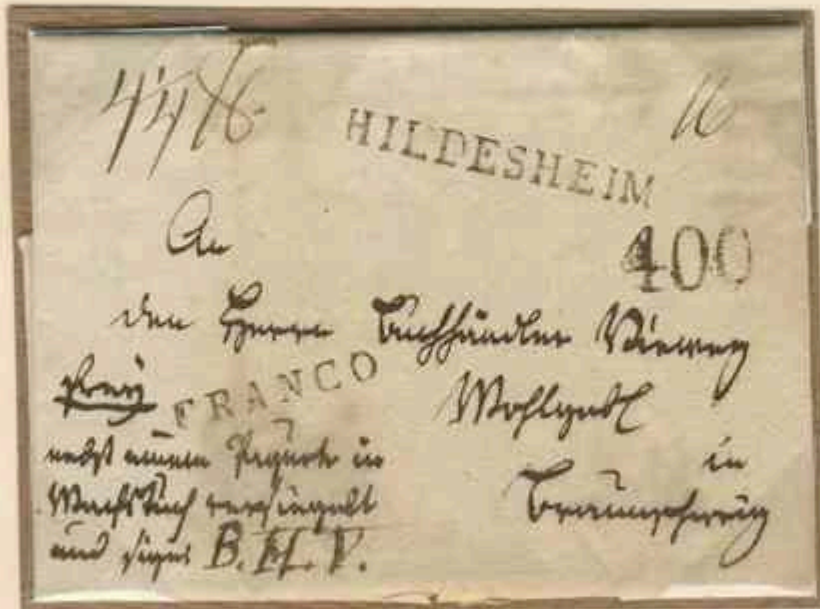 16
HILDESHEIM
An
400
den Herrn Buchhändler Vieweg
frey
FRANCO
Wohlgeb
nebst einem Paquete in
Wachstuch versiegelt
und sign B. H. V.
in
Braunschweig